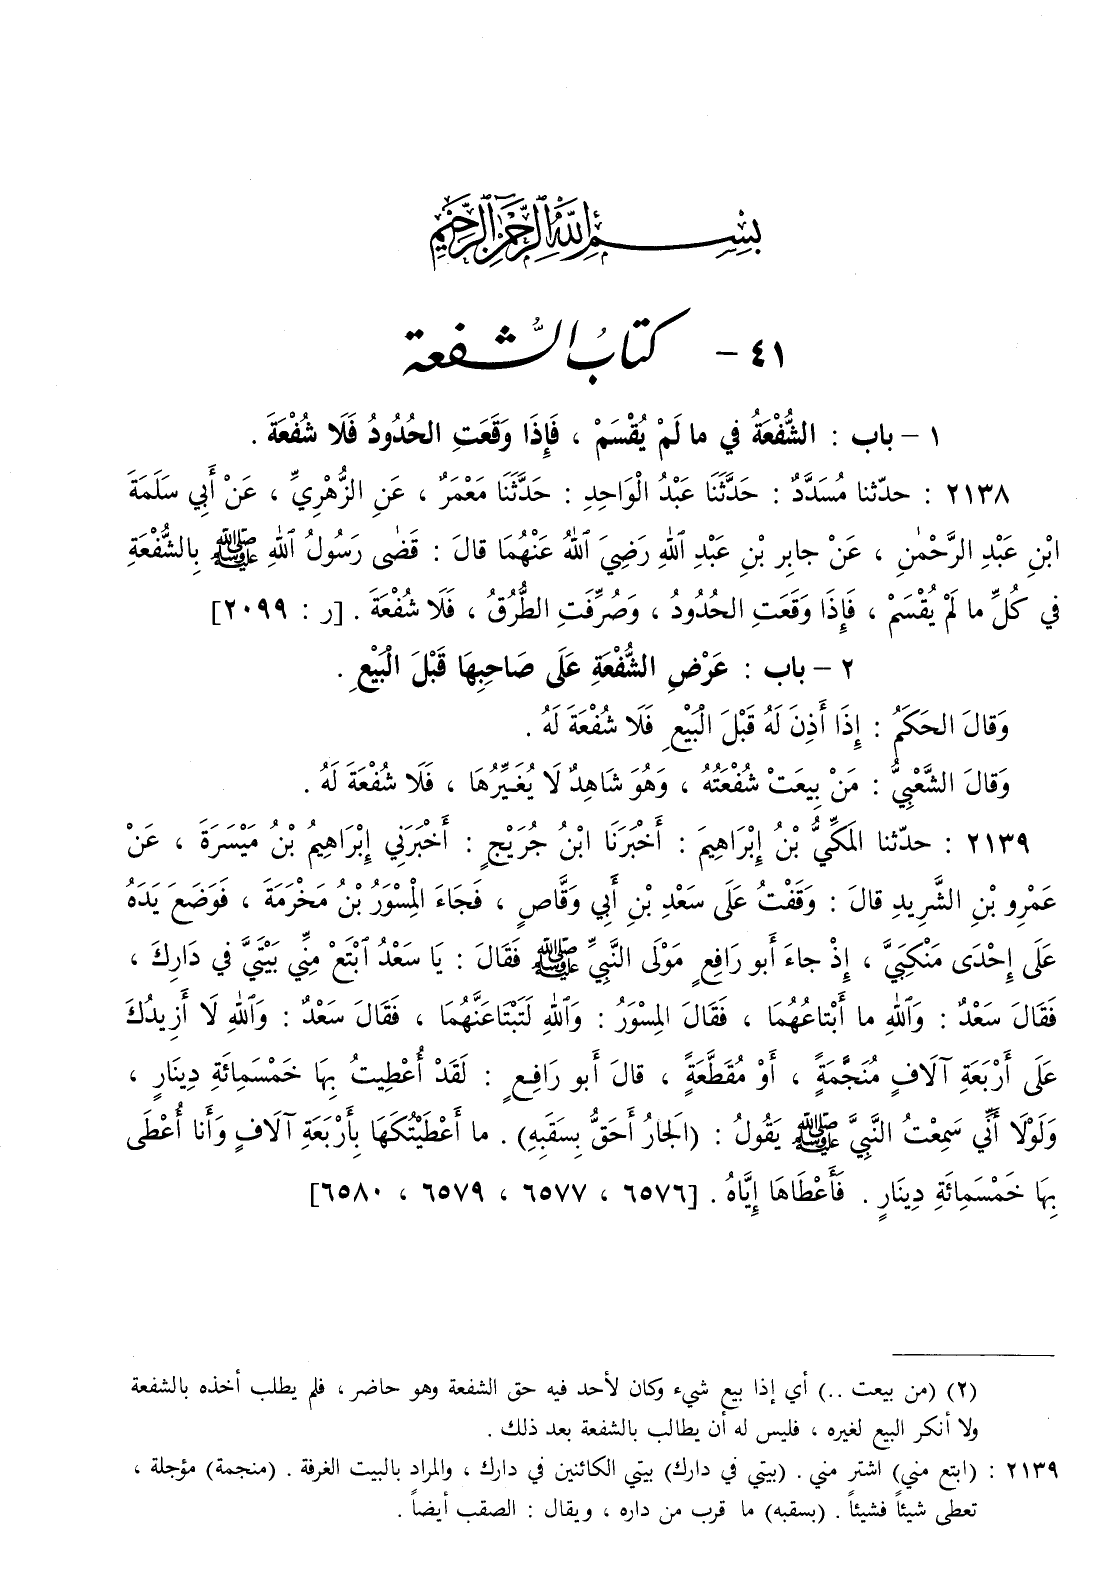 بِسْمِ ٱللَّهِ ٱلرَّحْمَٰنِ ٱلرَّحِيمِ
٤١ - كتابُ الشُّفعة
١ - باب : الشُّفْعَةُ في ما لَمْ يُقْسَمْ ، فَإِذَا وَقَعَتِ الحُدُودُ فَلَا شُفْعَةَ .
٢١٣٨ : حدّثنا مُسَدَّدٌ : حَدَّثَنَا عَبْدُ الْوَاحِدِ : حَدَّثَنَا مَعْمَرٌ ، عَنِ الزُّهْرِيِّ ، عَنْ أَبِي سَلَمَةَ
ابْنِ عَبْدِ الرَّحْمٰنِ ، عَنْ جابِرِ بْنِ عَبْدِ ٱللهِ رَضِيَ ٱللهُ عَنْهُمَا قالَ : قَضٰى رَسُولُ ٱللهِ ﷺ بِالشُّفْعَةِ
في كُلِّ ما لَمْ يُقْسَمْ ، فَإِذَا وَقَعَتِ الحُدُودُ ، وَصُرِّفَتِ الطُّرُقُ ، فَلَا شُفْعَةَ . [ر : ٢٠٩٩]
٢ - باب : عَرْضِ الشُّفْعَةِ عَلَى صَاحِبِهَا قَبْلَ الْبَيْعِ .
وَقالَ الحَكَمُ : إِذَا أَذِنَ لَهُ قَبْلَ الْبَيْعِ فَلَا شُفْعَةَ لَهُ .
وَقالَ الشَّعْبِيُّ : مَنْ بِيعَتْ شُفْعَتُهُ ، وَهُوَ شَاهِدٌ لَا يُغَيِّرُهَا ، فَلَا شُفْعَةَ لَهُ .
٢١٣٩ : حدّثنا المَكِّيُّ بْنُ إِبْرَاهِيمَ : أَخْبَرَنَا ابْنُ جُرَيْجٍ : أَخْبَرَنِي إِبْرَاهِيمُ بْنُ مَيْسَرَةَ ، عَنْ
عَمْرِو بْنِ الشَّرِيدِ قالَ : وَقَفْتُ عَلَى سَعْدِ بْنِ أَبِي وَقَّاصٍ ، فَجَاءَ الْمِسْوَرُ بْنُ مَخْرَمَةَ ، فَوَضَعَ يَدَهُ
عَلَى إِحْدَى مَنْكِبَيَّ ، إِذْ جاءَ أَبو رَافِعٍ مَوْلَى النَّبِيِّ ﷺ فَقَالَ : يَا سَعْدُ ٱبْتَعْ مِنِّي بَيْتَيَّ في دَارِكَ ،
فَقَالَ سَعْدٌ : وَٱللهِ ما أَبْتاعُهُمَا ، فَقَالَ المِسْوَرُ : وَٱللهِ لَتَبْتَاعَنَّهُمَا ، فَقَالَ سَعْدٌ : وَٱللهِ لَا أَزِيدُكَ
عَلَى أَرْبَعَةِ آلَافٍ مُنَجَّمَةً ، أَوْ مُقَطَّعَةً ، قالَ أَبو رَافِعٍ : لَقَدْ أُعْطِيتُ بِهَا خَمْسَمِائَةِ دِينَارٍ ،
وَلَوْلَا أَنِّي سَمِعْتُ النَّبِيَّ ﷺ يَقُولُ : (الجَارُ أَحَقُّ بِسَقَبِهِ) . ما أَعْطَيْتُكَهَا بِأَرْبَعَةِ آلَافٍ وَأَنا أُعْطَى
بِهَا خَمْسَمِائَةِ دِينَارٍ . فَأَعْطَاهَا إِيَّاهُ . [٦٥٧٦ ، ٦٥٧٧ ، ٦٥٧٩ ، ٦٥٨٠]
(٢) (من بيعت ..) أي إذا بيع شيء وكان لأحد فيه حق الشفعة وهو حاضر ، فلم يطلب أخذه بالشفعة
ولا أنكر البيع لغيره ، فليس له أن يطالب بالشفعة بعد ذلك .
٢١٣٩ : (ابتع مني) اشتر مني . (بيتي في دارك) بيتي الكائنين في دارك ، والمراد بالبيت الغرفة . (منجمة) مؤجلة ،
تعطى شيئاً فشيئاً . (بسقبه) ما قرب من داره ، ويقال : الصقب أيضاً .